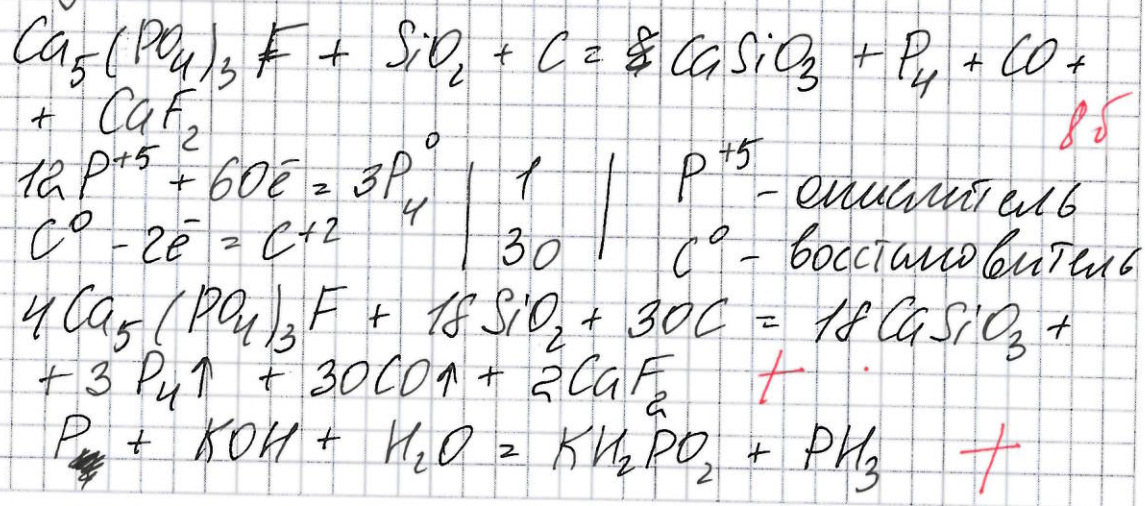 Ca₅(PO₄)₃F + SiO₂ + C = CaSiO₃ + P₄ + CO +
+ CaF₂
8б
12P⁺⁵ + 60ē = 3P₄⁰ | 1 | P⁺⁵ - окислитель
C⁰ - 2ē = C⁺² | 30 | C⁰ - восстановитель
4Ca₅(PO₄)₃F + 18SiO₂ + 30C = 18CaSiO₃ +
+ 3P₄↑ + 30CO↑ + 2CaF₂ +
P + KOH + H₂O = KH₂PO₂ + PH₃ +